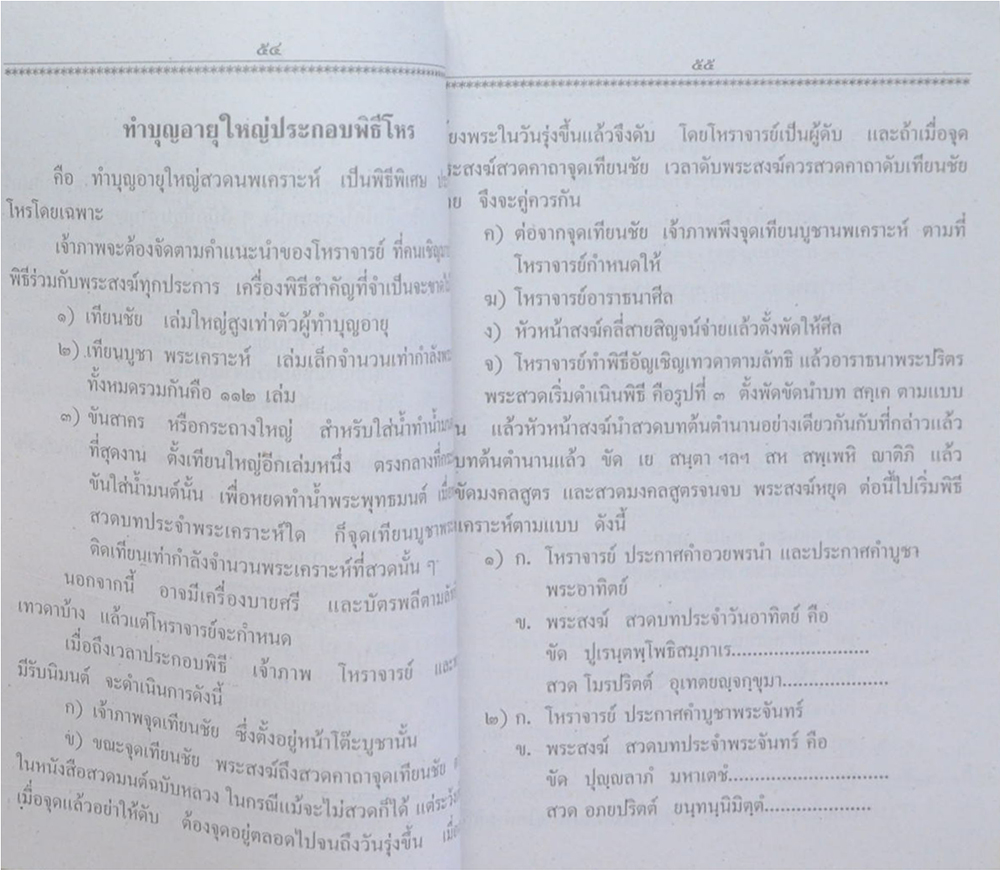 ๕๔
ทำบุญอายุใหญ่ประกอบพิธีโหร
คือ ทำบุญอายุใหญ่สวดนพเคราะห์ เป็นพิธีพิเศษ
โหรโดยเฉพาะ
เจ้าภาพจะต้องจัดตามคำแนะนำของโหราจารย์ ที่ตนเชิญ
พิธีร่วมกับพระสงฆ์ทุกประการ เครื่องพิธีสำคัญที่จำเป็นจะขาด
๑) เทียนชัย เล่มใหญ่สูงเท่าตัวผู้ทำบุญอายุ
๒) เทียนบูชา พระเคราะห์ เล่มเล็กจำนวนเท่ากำลัง
ทั้งหมดรวมกันคือ ๑๑๒ เล่ม
๓) ขันสาคร หรือกระถางใหญ่ สำหรับใส่น้ำทำน้ำ
ที่สุดงาน ตั้งเทียนใหญ่อีกเล่มหนึ่ง ตรงกลางที่
ขันใส่น้ำมนต์นั้น เพื่อหยดทำน้ำพระพุทธมนต์ เมื่อ
สวดบทประจำพระเคราะห์ใด ก็จุดเทียนบูชา
ติดเทียนเท่ากำลังจำนวนพระเคราะห์ที่สวดนั้น ๆ
นอกจากนี้ อาจมีเครื่องบายศรี และบัตรพลีตาม
เทวดาบ้าง แล้วแต่โหราจารย์จะกำหนด
เมื่อถึงเวลาประกอบพิธี เจ้าภาพ โหราจารย์
มีรับนิมนต์ จะดำเนินการดังนี้
ก) เจ้าภาพจุดเทียนชัย ซึ่งตั้งอยู่หน้าโต๊ะบูชานั้น
ข) ขณะจุดเทียนชัย พระสงฆ์ถึงสวดคาถาจุดเทียนชัย
ในหนังสือสวดมนต์ฉบับหลวง ในกรณีแม้จะไม่สวดก็ได้ แต่ระวัง
เมื่อจุดแล้วอย่าให้ดับ ต้องจุดอยู่ตลอดไปจนถึงวันรุ่งขึ้น
๕๕
ยงพระในวันรุ่งขึ้นแล้วจึงดับ โดยโหราจารย์เป็นผู้ดับ และถ้าเมื่อจุด
ระสงฆ์สวดคาถาจุดเทียนชัย เวลาดับพระสงฆ์ควรสวดคาถาดับเทียนชัย
ย จึงจะคู่ควรกัน
ค) ต่อจากจุดเทียนชัย เจ้าภาพพึงจุดเทียนบูชานพเคราะห์ ตามที่
โหราจารย์กำหนดให้
ฆ) โหราจารย์อาราธนาศีล
ง) หัวหน้าสงฆ์คลี่สายสิญจน์จ่ายแล้วตั้งพัดให้ศีล
จ) โหราจารย์ทำพิธีอัญเชิญเทวดาตามลัทธิ แล้วอาราธนาพระปริตร
พระสวดเริ่มดำเนินพิธี คือรูปที่ ๓ ตั้งพัดขัดนำบท สคฺเค ตามแบบ
น แล้วหัวหน้าสงฆ์นำสวดบทต้นตำนานอย่างเดียวกันกับที่กล่าวแล้ว
บทต้นตำนานแล้ว ขัด เย สนฺตา ฯลฯ สห สพฺเพหิ ญาติภิ แล้ว
ขัดมงคลสูตร และสวดมงคลสูตรจนจบ พระสงฆ์หยุด ต่อนี้ไปเริ่มพิธี
เคราะห์ตามแบบ ดังนี้
๑) ก. โหราจารย์ ประกาศคำอวยพรนำ และประกาศคำบูชา
พระอาทิตย์
ข. พระสงฆ์ สวดบทประจำวันอาทิตย์ คือ
ขัด ปูเรนฺตพฺโพธิสมฺภาเร..........................
สวด โมรปริตต์ อุเทตยญฺจกฺขุมา....................
๒) ก. โหราจารย์ ประกาศคำบูชาพระจันทร์
ข. พระสงฆ์ สวดบทประจำพระจันทร์ คือ
ขัด ปุญฺญลาภํ มหาเตชํ..............................
สวด อภยปริตต์ ยนฺทนฺนิมิตฺตํ....................